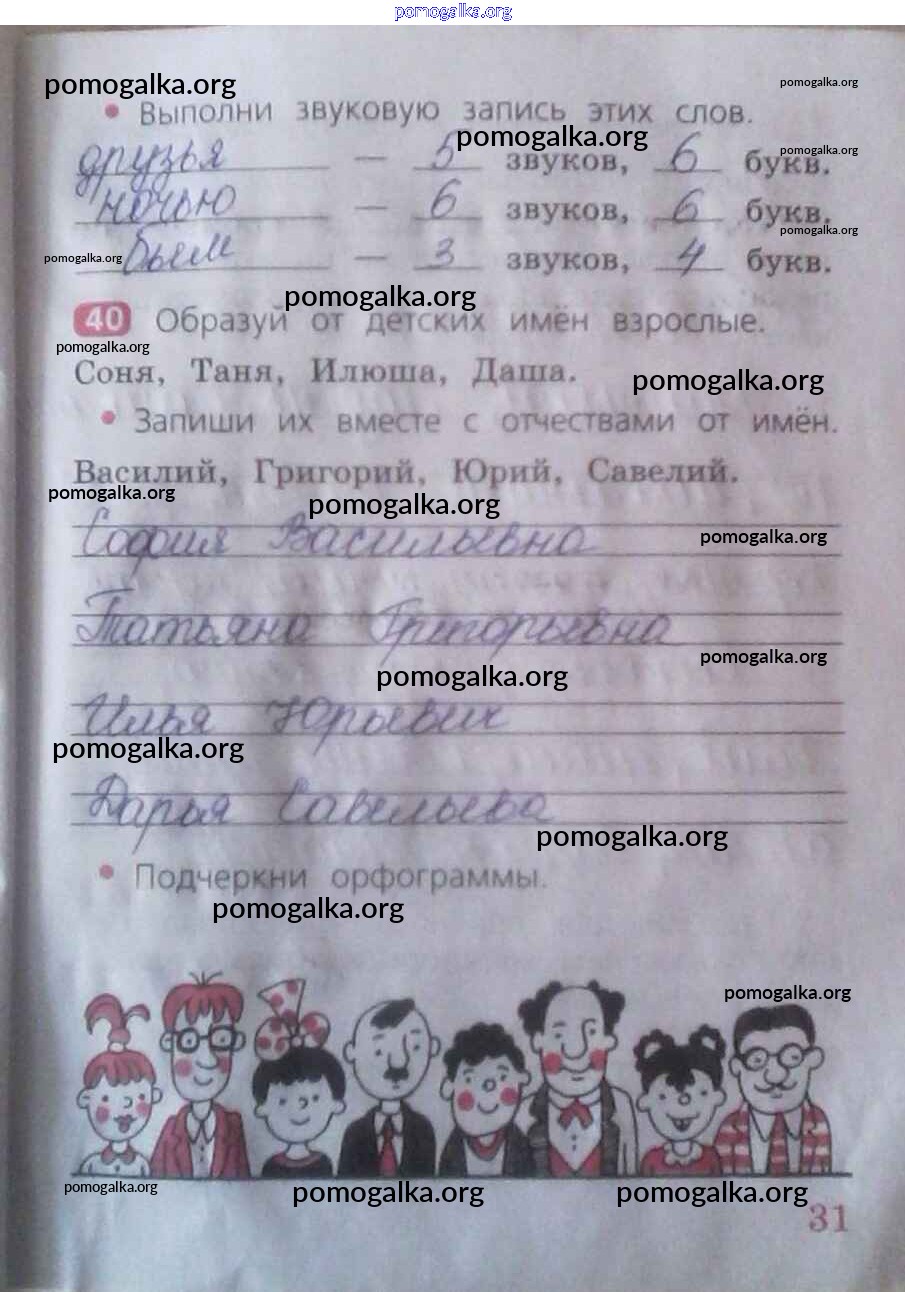 pomogalka.org
pomogalka.org
pomogalka.org
• Выполни звуковую запись этих слов.
pomogalka.org
друзья — 5 звуков, 6 букв.
pomogalka.org
ночью — 6 звуков, 6 букв.
pomogalka.org
pomogalka.org
бьем — 3 звуков, 4 букв.
pomogalka.org
40 Образуй от детских имён взрослые.
pomogalka.org
Соня, Таня, Илюша, Даша.
pomogalka.org
• Запиши их вместе с отчествами от имён.
Василий, Григорий, Юрий, Савелий.
pomogalka.org
pomogalka.org
София Васильевна
pomogalka.org
Татьяна Григорьевна
pomogalka.org
pomogalka.org
Илья Юрьевич
pomogalka.org
Дарья Савельева
pomogalka.org
• Подчеркни орфограммы.
pomogalka.org
pomogalka.org
pomogalka.org
pomogalka.org
pomogalka.org
31